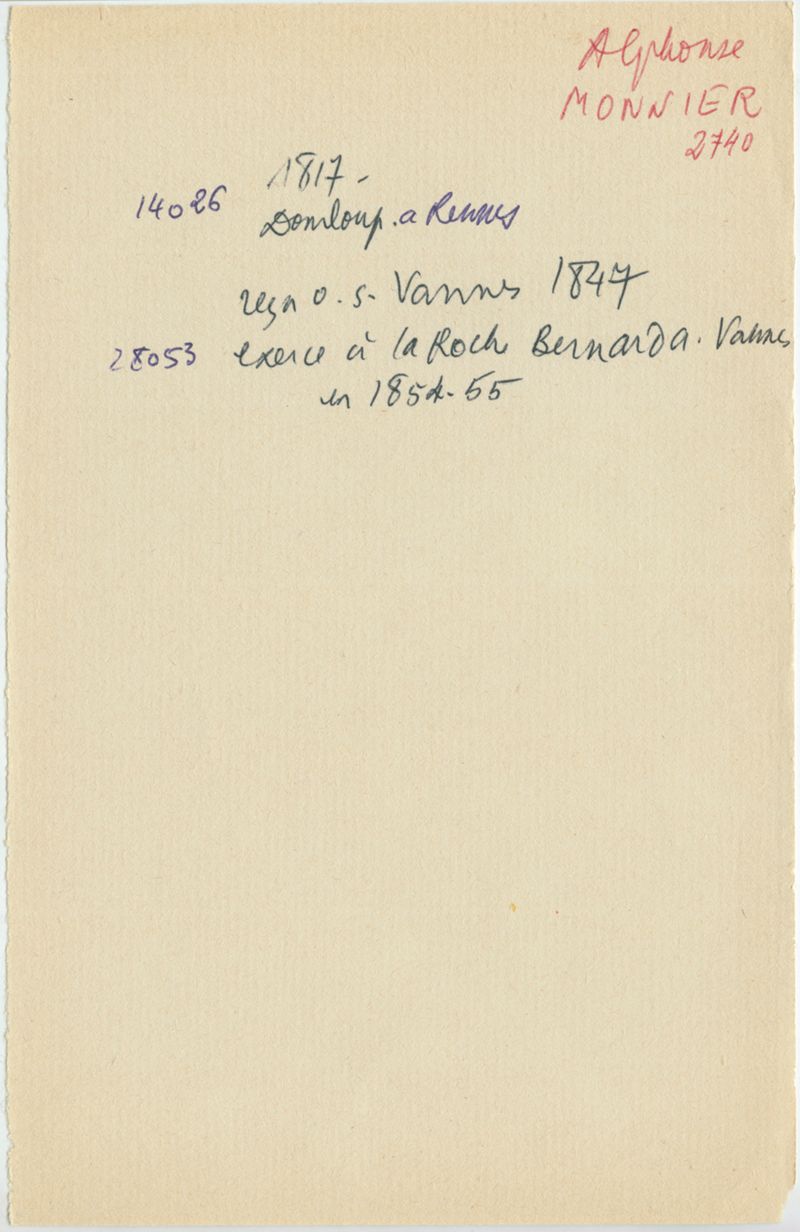 Alphonse
MONNIER
2740
1817 -
14026 Domloup. a Rennes
reçu o. s. Vannes 1847
28053 exerce à la Roche Bernard a. Vannes
en 1854-55